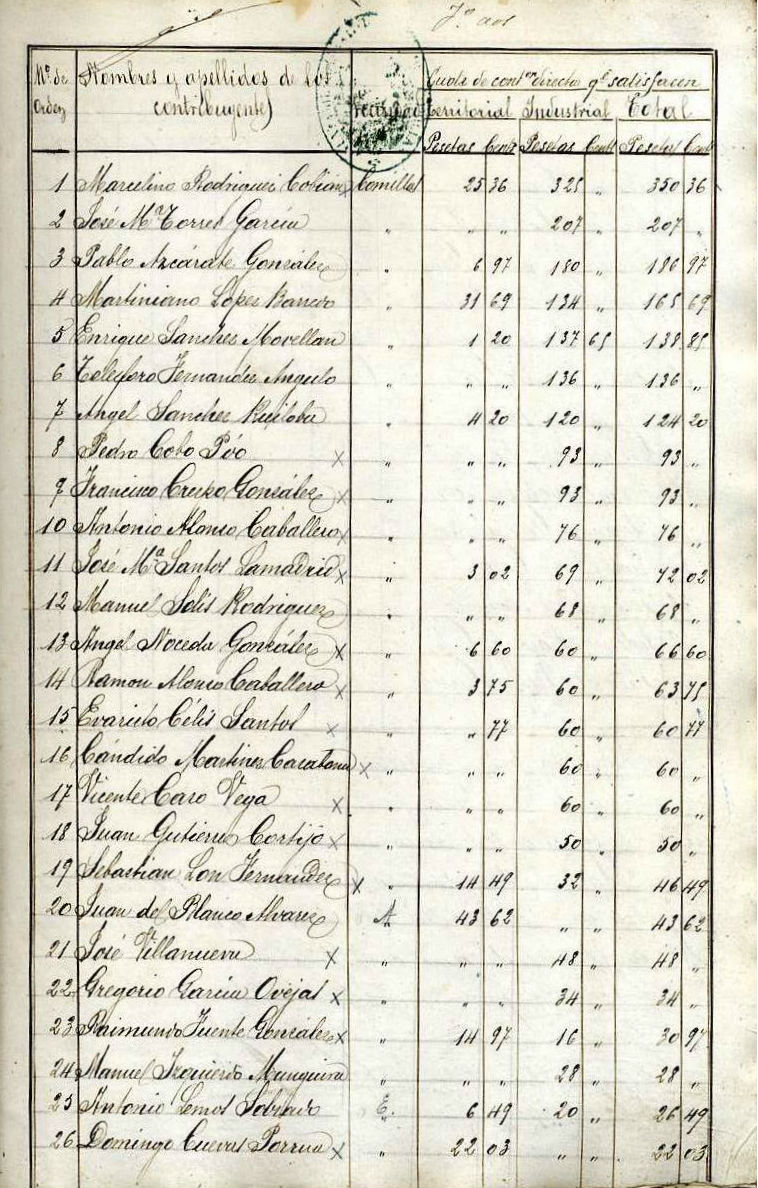 Nº de Orden Nombres y apellidos de los contribuyentes Vecindad Cuota de contón directa qe satisfacen
Territorial Industrial Total
Pesetas Cents Pesetas Cents Pesetas Cents
1 Marcelino Rodriguez Cobian x Comillas 25 36 325 " 350 36
2 José Mª Torres García " " " 207 " 207 "
3 Pablo Azcárate González " 6 97 180 " 186 97
4 Martiniano López Barredo " 31 69 134 " 165 69
5 Enrique Sanchez Movellan " 1 20 137 65 138 85
6 Telesforo Fernandez Angulo " " " 136 " 136 "
7 Angel Sanchez Ruiloba " 4 20 120 " 124 20
8 Pedro Cobo Póo x " " " 93 " 93 "
9 Francisco Crespo González x " " " 93 " 93 "
10 Antonio Alonso Caballero x " " " 76 " 76 "
11 José Mª Santos Lamadrid x " 3 02 69 " 72 02
12 Manuel Solis Rodriguez " " " 68 " 68 "
13 Angel Noceda González x " 6 60 60 " 66 60
14 Ramon Alonso Caballero x " 3 75 60 " 63 75
15 Evaristo Célis Santos x " " 77 60 " 60 77
16 Cándido Martinez x " " " 60 " 60 "
17 Vicente Caro Vega x " " " 60 " 60 "
18 Juan Gutierrez Cortijo x " " " 50 " 50 "
19 Sebastian Lon Fernandez x " 14 49 32 " 46 49
20 Juan del Blanco Alvarez A 43 62 " " 43 62
21 José Villanueva x " " " 48 " 48 "
22 Gregorio García Ovejas x " " " 34 " 34 "
23 Raimundo Fuente González x " 14 97 16 " 30 97
24 Manuel Izquierdo Munguira " " " 28 " 28 "
25 Antonio Lemos Sobrado E. 6 49 20 " 26 49
26 Domingo Cuevas Porrua x " 22 03 " " 22 03